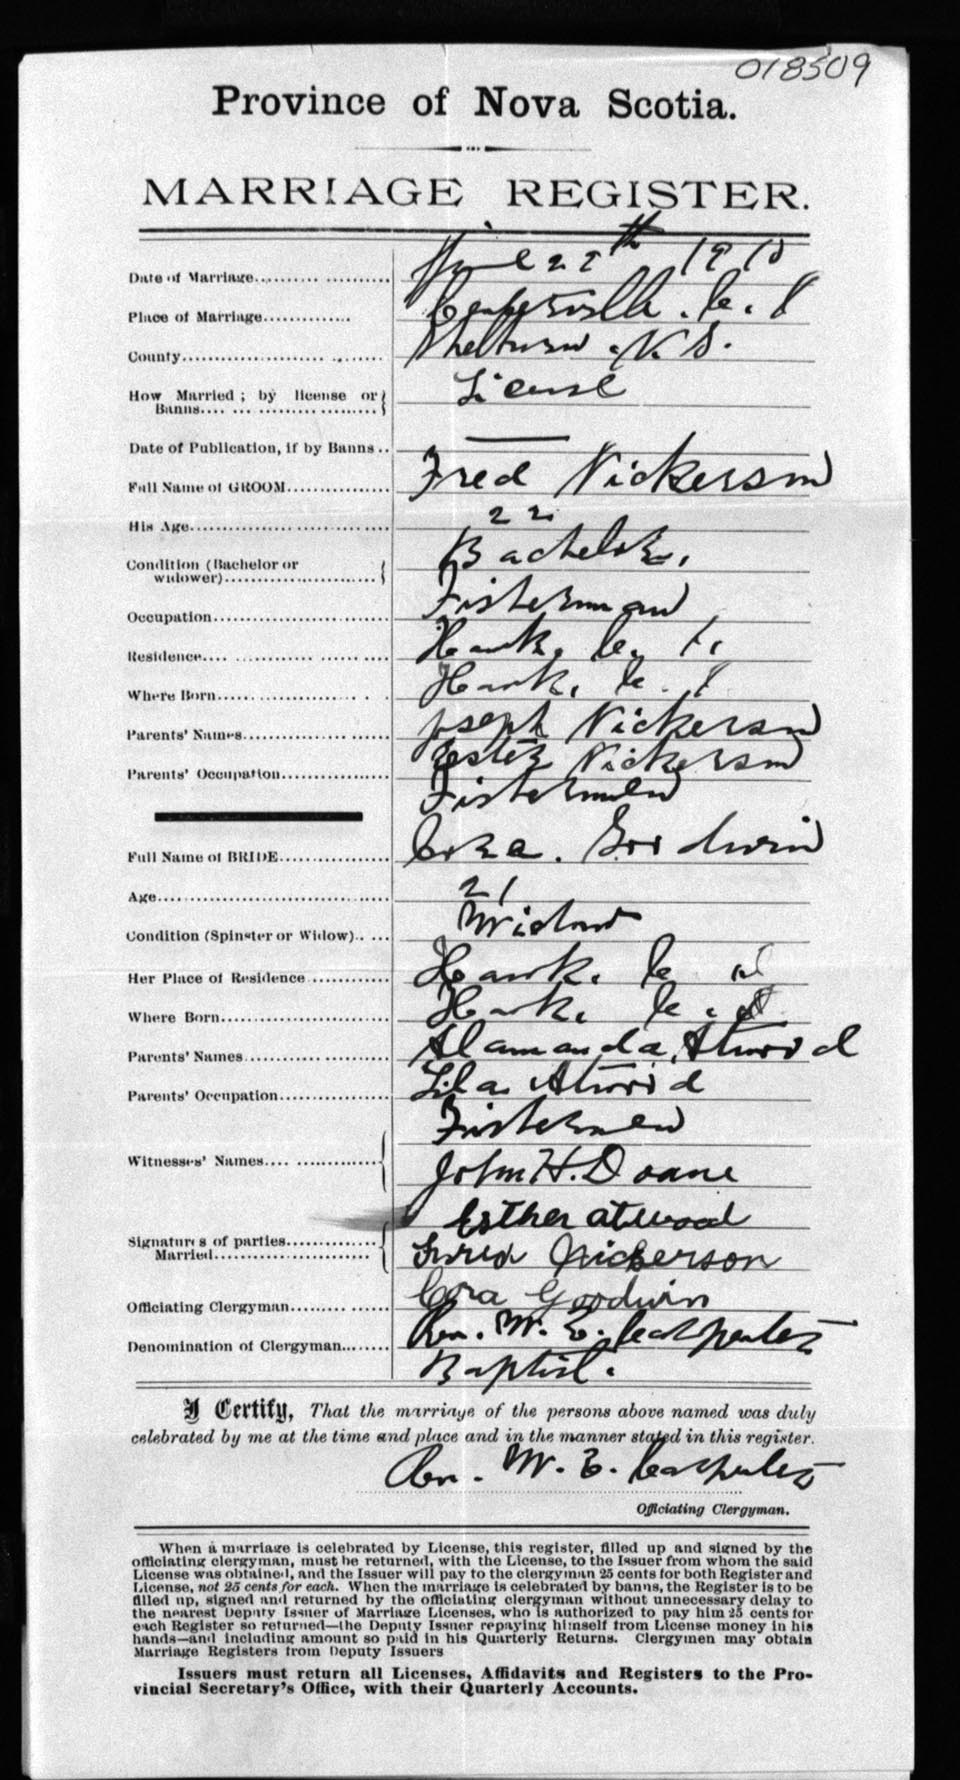 018509
Province of Nova Scotia.
MARRIAGE REGISTER.
Date of Marriage April 2 th 1910
Place of Marriage Centerville. C. I
County Shelburne. N. S.
How Married ; by license or License
Banns
Date of Publication, if by Banns —
Full Name of GROOM Fred Nickerson
His Age 22
Condition (Bachelor or Bachelor.
widower)
Occupation Fisherman
Residence Hawk. C. I.
Where Born Hawk. C. I
Parents' Names Joseph Nickerson
Nickerson
Parents' Occupation Fishermen
Full Name of BRIDE Cora. Goodwin
Age 21
Condition (Spinster or Widow) Widow
Her Place of Residence Hawk. C. I
Where Born Hawk. C. I
Parents' Names Alamanda. Atwood
Lila Atwood
Parents' Occupation Fishermen
Witnesses' Names John H. Doane
Esther atwood
Signatures of parties Fred Nickerson
Married Cora Goodwin
Officiating Clergyman Rev. W. E. Carpenter
Denomination of Clergyman Baptist.
I Certify, That the marriage of the persons above named was duly
celebrated by me at the time and place and in the manner stated in this register.
Rev. W. E. Carpenter
Officiating Clergyman.
When a marriage is celebrated by License, this register, filled up and signed by the
officiating clergyman, must be returned, with the License, to the Issuer from whom the said
License was obtained, and the Issuer will pay to the clergyman 25 cents for both Register and
License, not 25 cents for each. When the marriage is celebrated by banns, the Register is to be
filled up, signed and returned by the officiating clergyman without unnecessary delay to
the nearest Deputy Issuer of Marriage Licenses, who is authorized to pay him 25 cents for
each Register so returned—the Deputy Issuer repaying himself from License money in his
hands—and including amount so paid in his Quarterly Returns. Clergymen may obtain
Marriage Registers from Deputy Issuers
Issuers must return all Licenses, Affidavits and Registers to the Pro-
vincial Secretary's Office, with their Quarterly Accounts.